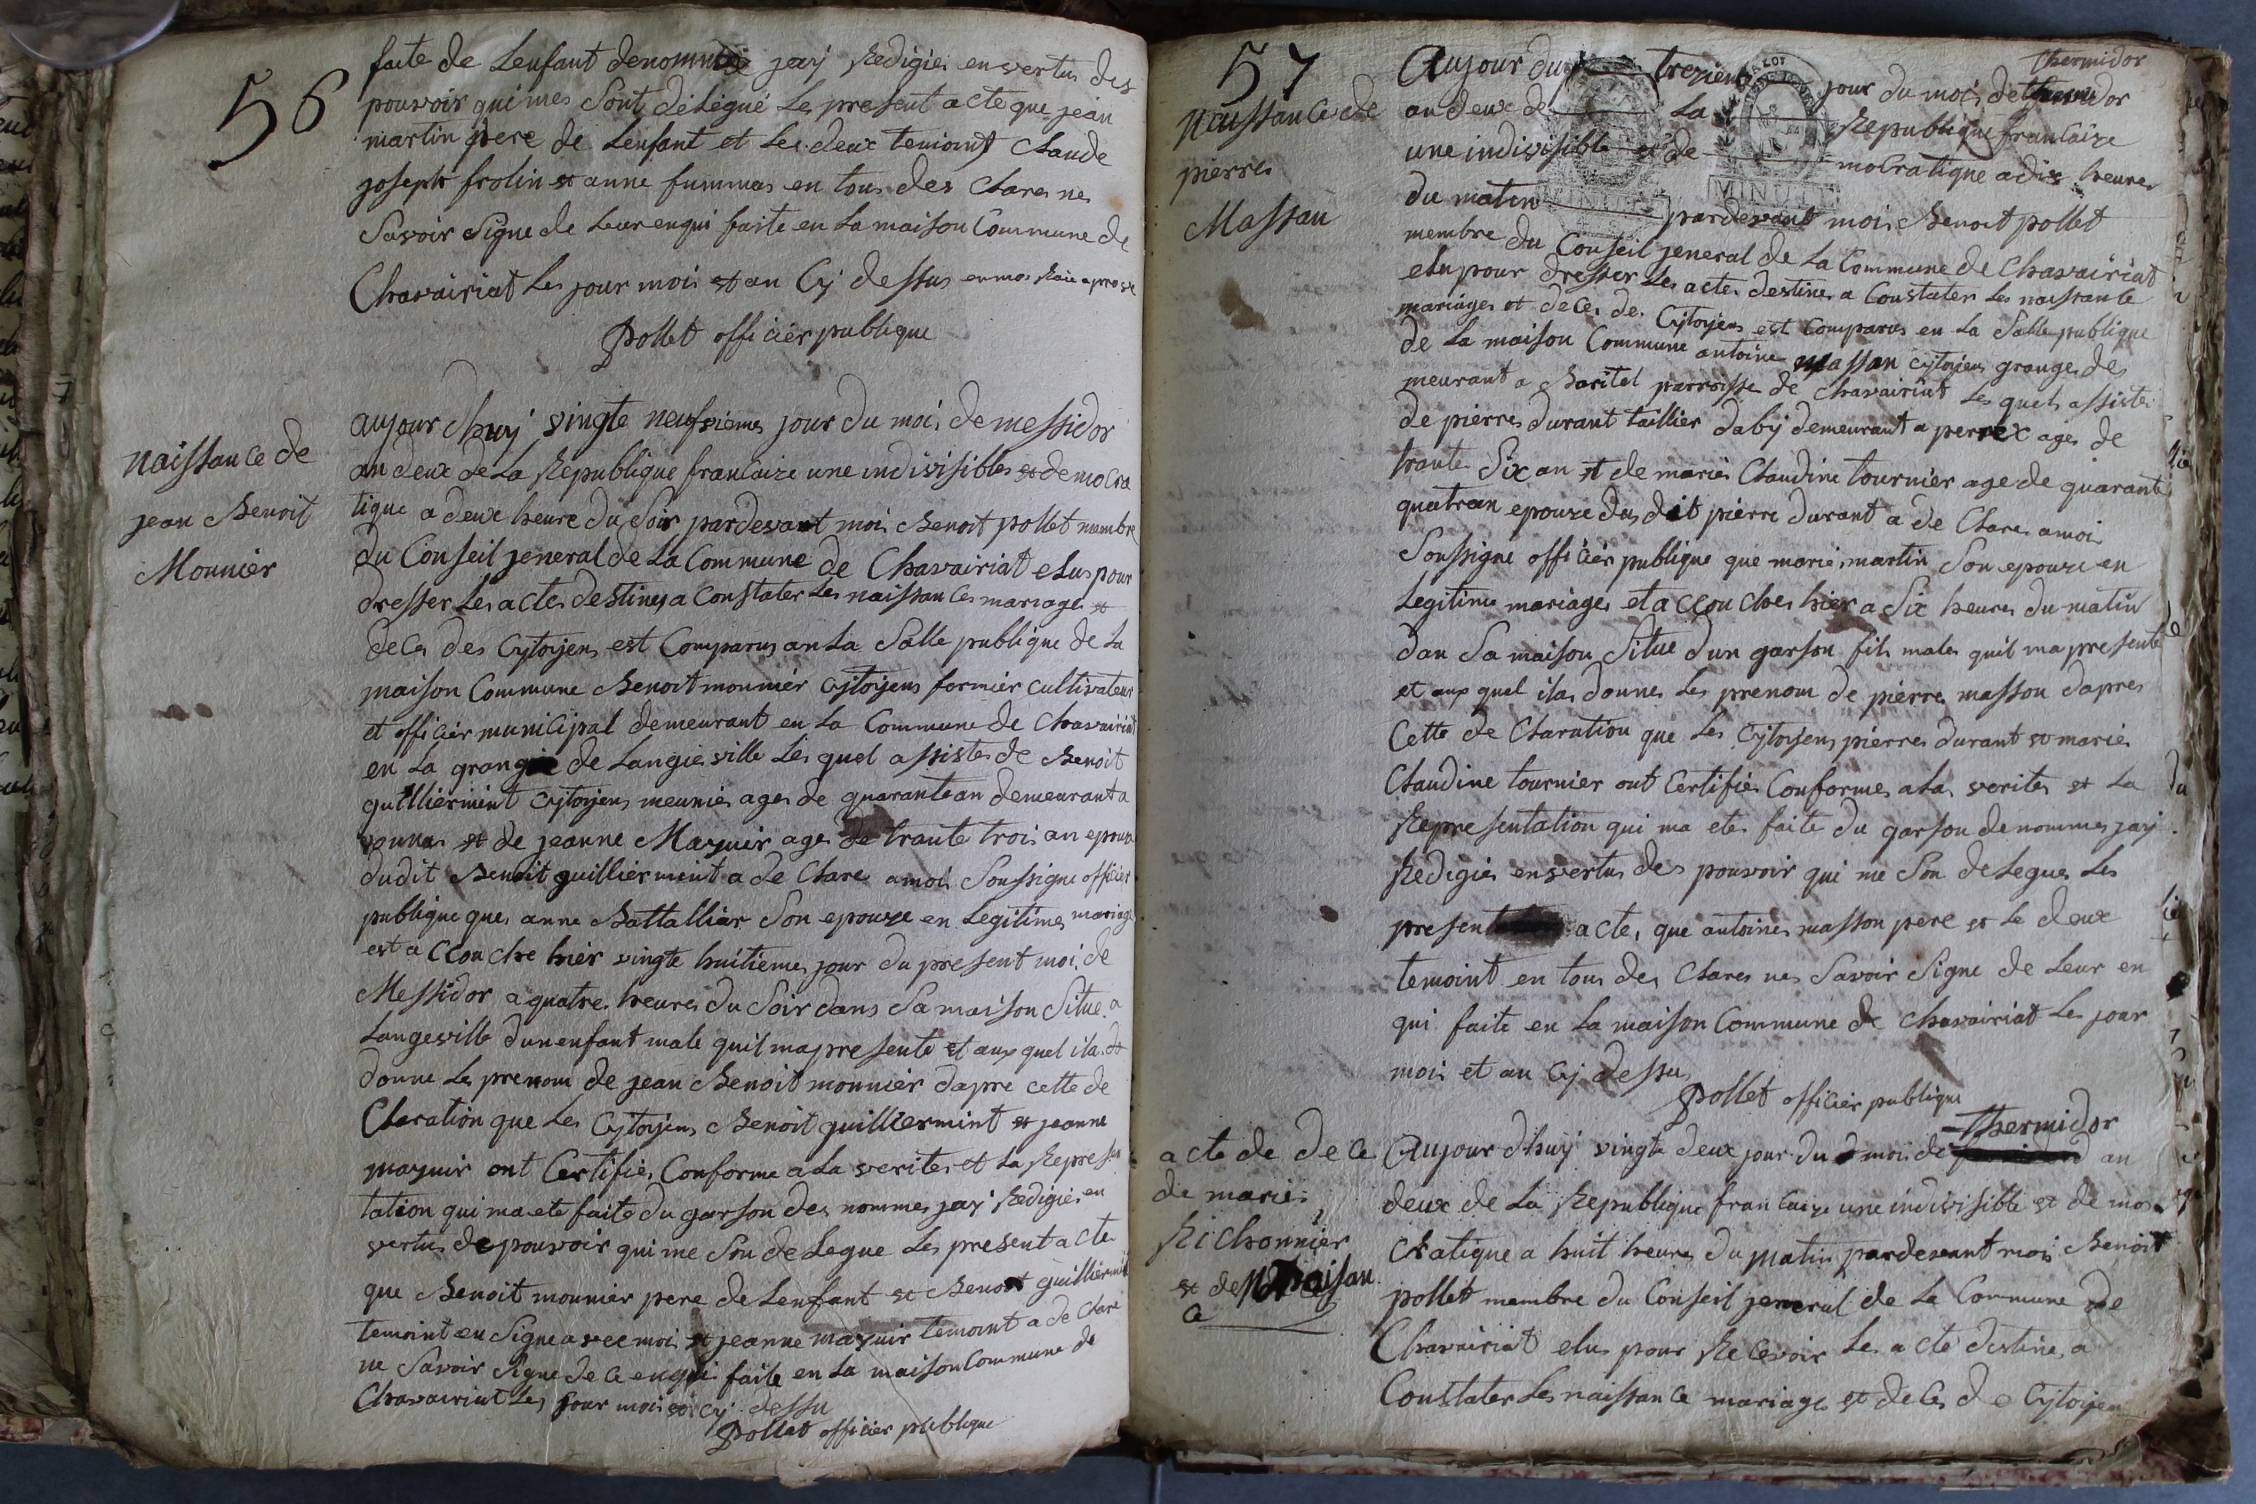 56
faite de Lenfant denommé jay Redigier en vertus des
pouvoir qui mes Sont délégué Le present acte que jean
martin pere de Lenfant et Les deux temoint Claude
joseph frolin et anne fummas en tous des Clares ne
Savoir Signe de Leur enqui faite en La maison Commune de
Chavairiat Les jour mois et an Cy dessus
Pollet officier publique
naissance de
jean Benoit
Monnier
aujour dhuy vingte neufviemes jour du mois de messidor
an deux de La Republique francaize une indivisibles et democra
tique a deux heure du Soir pardevant moi Benoit pollet mambre
du Conseil jeneral de La Commune de Chavairiat elus pour
dresser Les actes destines a Constater Les naissances mariages et
deces des Cytoyens est Comparus an La Salle publique de La
maison Commune Benoit monnier Cytoyens formier cultivateur
et officier municipal demeurant en La Commune de Chavairiat
en La grange de Langieville Les quel assistes de Benoit
guillierment Cytoyens meunier ages de quarante an demeurant a
vonnas et de jeanne Maynir ages de trante trois an epouse
dudit Benoit guillierment a de Clare a moi Soussigne officier
publique ques anne Battalliar Son epouze en Legitimes mariage
est a Ccouche hier vingte huitiemes jour du present moi de
Messidor a quatre heures du Soir dans Sa maison Situe a
Langeville dun enfant male quil ma presente et aux quel il a
donne Les prenom de jean Benoit monnier dapre cette de
Claration que Les Cytoyens Benoit guillierment et jeanne
maynir ont Certifier Conforme a La verites et La Represen
tation qui ma ete faite du garson des nommes jay Redigier en
vertus de pouvoir qui me Son de Legue Les present acte
que Benoit monnier pere de Lenfant et Benoit guillierment
temoint en Signe avec moi et jeanne maynir temoint a de Clare
ne Savoir Signe de Ce enqui faite en La maison Commune de
Chavairiat Les jour mois et Cy dessu
Pollet officier publique
57
Naissance de
pierres
Massan
Thermidor
Aujour du treziemes jour du mois de
an deux de La Republique francaize
une indivisible et de mocratique a dix heures
du matin pardevant moi Benoit pollet
MINUTE
MINUTE
membre du Conseil jeneral de La Commune de Chavairiat
elu pour dresser Les actes destines a Constater Les naissance
mariages et deces des Cytoyens est Comparus en La Salle publique
de La maison Commune antoine Massan Cytoyens granges de
meurant a Baritel parroisse de Chavairiat Les quel assistes
de pierres durant taillier dabij demeurant a perrex ages de
trante Six an et de maries Claudine tournier age de quarante
quatre an epouze du dit pierre durant a de Clares a moi
Soussigne officier publique que maries martin Son epouze en
Legitime mariages et a Ccouches hier a Six heures du matin
dan Sa maison Situe dun garson fils males quil ma presente
et aux quel il a donnes Les prenom de pierres masson dapres
Cette de Claration que Les Cytoyens pierres durant et maries
Claudine tournier ont Certifies Conformes a La verites et La
Representation qui ma etes faite du garson denommes jay
Redigies en vertus des pouvoir qui me Son de Legues Les
present acte, que antoines masson pere et Le deux
temoint en tous des Clares nes Savoir Signe de Leur en
qui faite en La maison Commune de Chavairiat Les jour
mois et an Cy dessus
Pollet officier publique
acte de dece
de maries
Richonnier
Thermidor
Aujour dhuy vingte deux jour du moi de an
deux de La Republique francaize une indivisible et de mo
Cratique a huit heures du matin pardevant moi Benoit
pollet membre du Conseil jeneral de La Commune de
Chavairiat elus pour Recevoir Les acte destines a
Constater Les naissance mariages et deces de Cytoyen